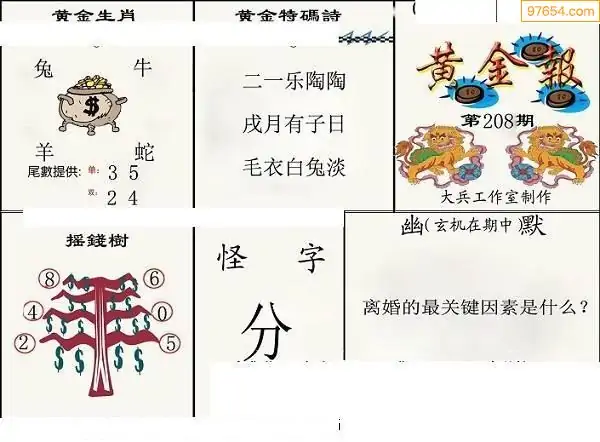 黄金生肖
兔 牛
$
羊 蛇
尾數提供: 单: 3 5
双: 2 4
黄金特碼詩
二一乐陶陶
戌月有子日
毛衣白兔淡
97654.com
黄金報
第208期
大兵工作室制作
摇錢樹
8 6
4 0
2 5
$ $ $ $ $ $ $ $ $ $
怪 字
分
幽(玄机在期中)默
离婚的最关键因素是什么?